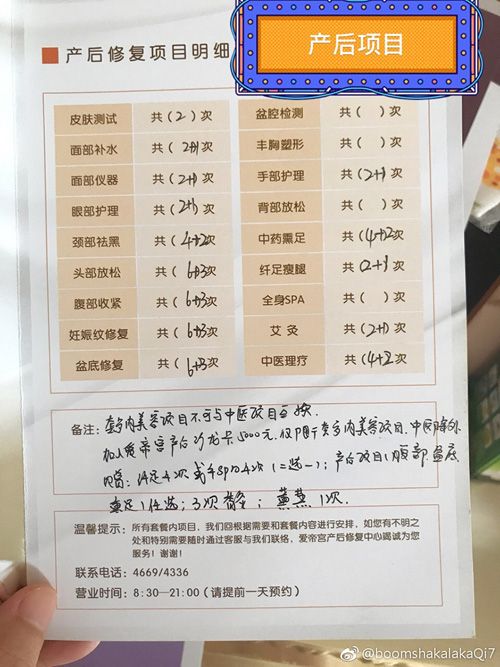 产后项目
产后修复项目明细
皮肤测试 共(2)次 盆腔检测 共( )次
面部补水 共(2+1)次 丰胸塑形 共( )次
面部仪器 共(2+1)次 手部护理 共(2+1)次
眼部护理 共(2+1)次 背部放松 共( )次
颈部祛黑 共(4+2)次 中药熏足 共(4+2)次
头部放松 共(6+3)次 纤足瘦腿 共(2+1)次
腹部收紧 共(6+3)次 全身SPA 共( )次
妊娠纹修复 共(6+3)次 艾灸 共(2+1)次
盆底修复 共(6+3)次 中医理疗 共(4+2)次
备注:套餐内美容项目不可与中医项目互换.
爱帝宫产后 卡5000元.仅限于套餐内美容项目.中医除外
4次 或 4次(二选一);产后项目:腹部 盆底
任选;3次 ; 1次.
温馨提示:所有套餐内项目,我们回根据需要和套餐内容进行安排,如您有不明之
处和特别需要随时通过客服与我们联络,爱帝宫产后修复中心竭诚为您
服务!谢谢!
联系电话:4669/4336
营业时间:8:30—21:00(请提前一天预约)
@boomshakalakaQi7